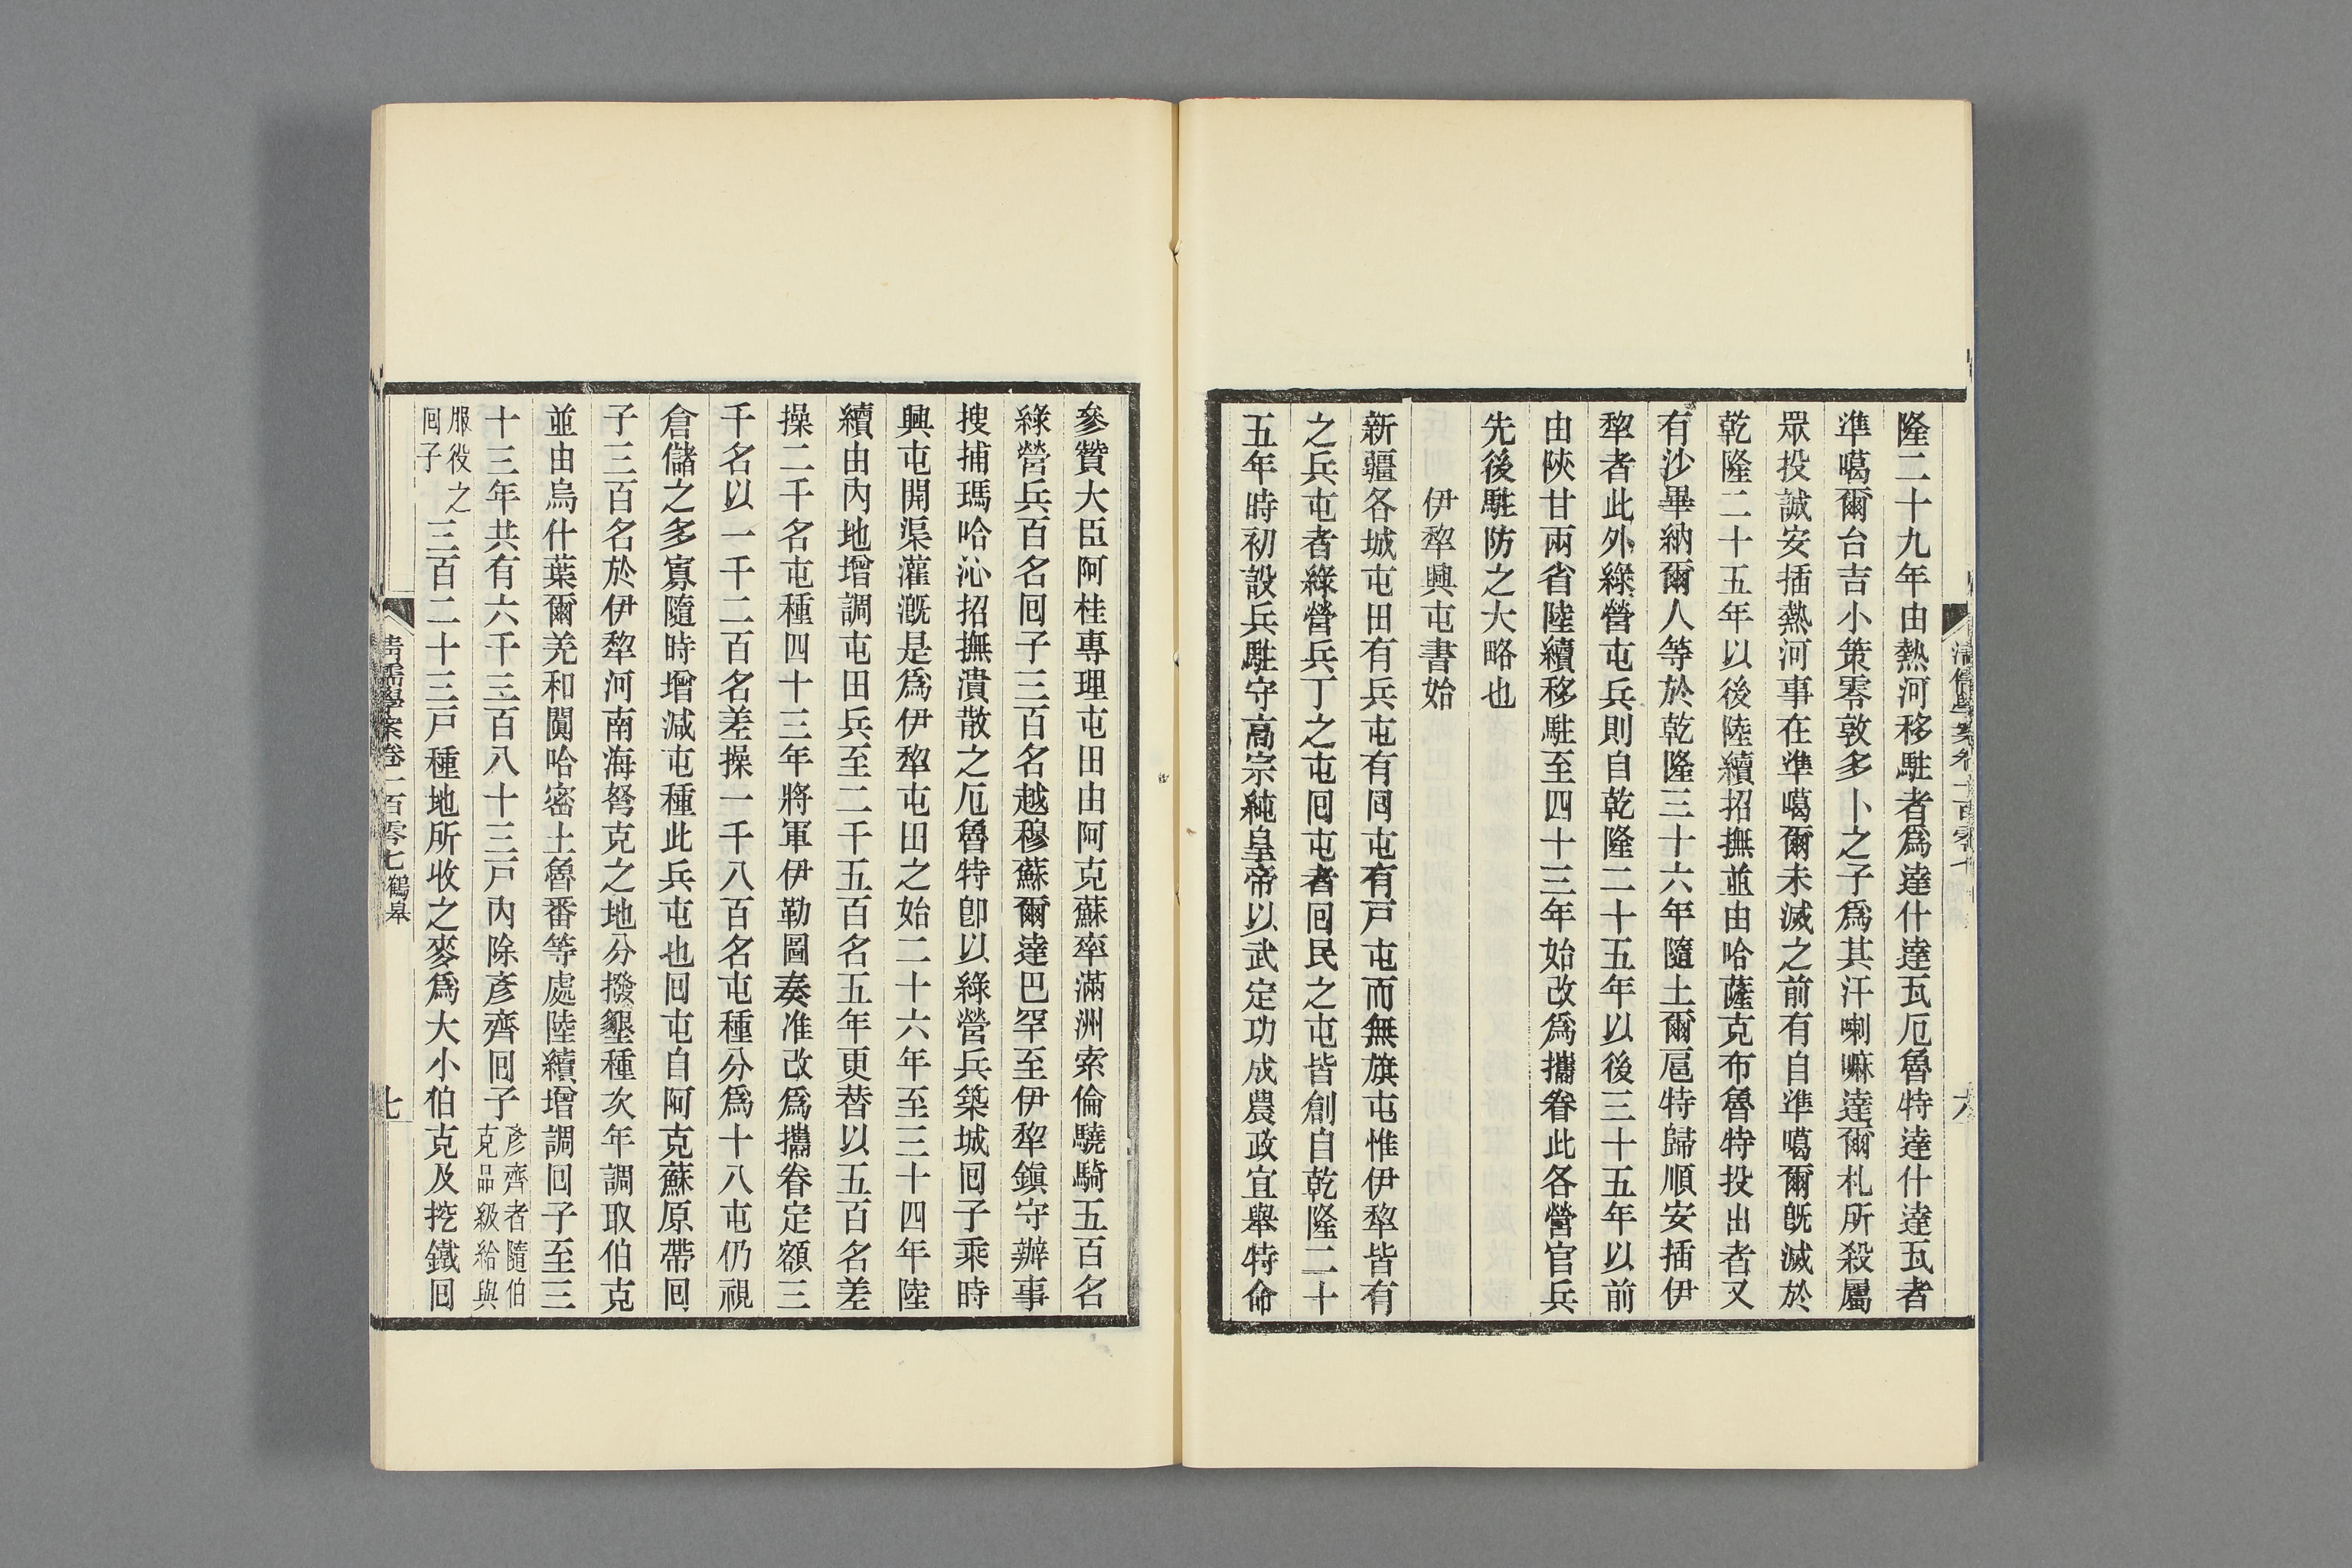 隆二十九年由熱河移駐者爲達什達瓦厄魯特達什達瓦者
準噶爾台吉小策零敦多卜之子爲其汗喇嘛達爾札所殺屬
眾投誠安插熱河事在準噶爾未滅之前有自準噶爾旣滅於
乾隆二十五年以後陸續招撫並由哈薩克布魯特投出者又
有沙畢納爾人等於乾隆三十六年隨土爾扈特歸順安插伊
犂者此外綠營屯兵則自乾隆二十五年以後三十五年以前
由陝甘兩省陸續移駐至四十三年始改爲攜眷此各營官兵
先後駐防之大略也
伊犂興屯書始
新疆各城屯田有兵屯有囘屯有戸屯而無旗屯惟伊犂皆有
之兵屯者綠營兵丁之屯囘屯者囘民之屯皆創自乾隆二十
五年時初設兵駐守高宗純皇帝以武定功成農政宜舉特命
參贊大臣阿桂專理屯田由阿克蘇率滿洲索倫驍騎五百名
綠營兵百名囘子三百名越穆蘇爾達巴罕至伊犂鎭守辦事
搜捕瑪哈沁招撫潰散之厄魯特卽以綠營兵築城囘子乘時
興屯開渠灌漑是爲伊犂屯田之始二十六年至三十四年陸
續由內地增調屯田兵至二千五百名五年更替以五百名差
操二千名屯種四十三年將軍伊勒圖奏准改爲攜眷定額三
千名以一千二百名差操一千八百名屯種分爲十八屯仍視
倉儲之多寡隨時增減屯種此兵屯也囘屯自阿克蘇原帶囘
子三百名於伊犂河南海努克之地分撥墾種次年調取伯克
並由烏什葉爾羌和闐哈密土魯番等處陸續增調囘子至三
十三年共有六千三百八十三戸內除彥齊囘子彥齊者隨伯克品級給與
服役之囘子三百二十三戸種地所收之麥爲大小伯克及挖鐵囘
清儒學案卷一百零七 鶴皋
七